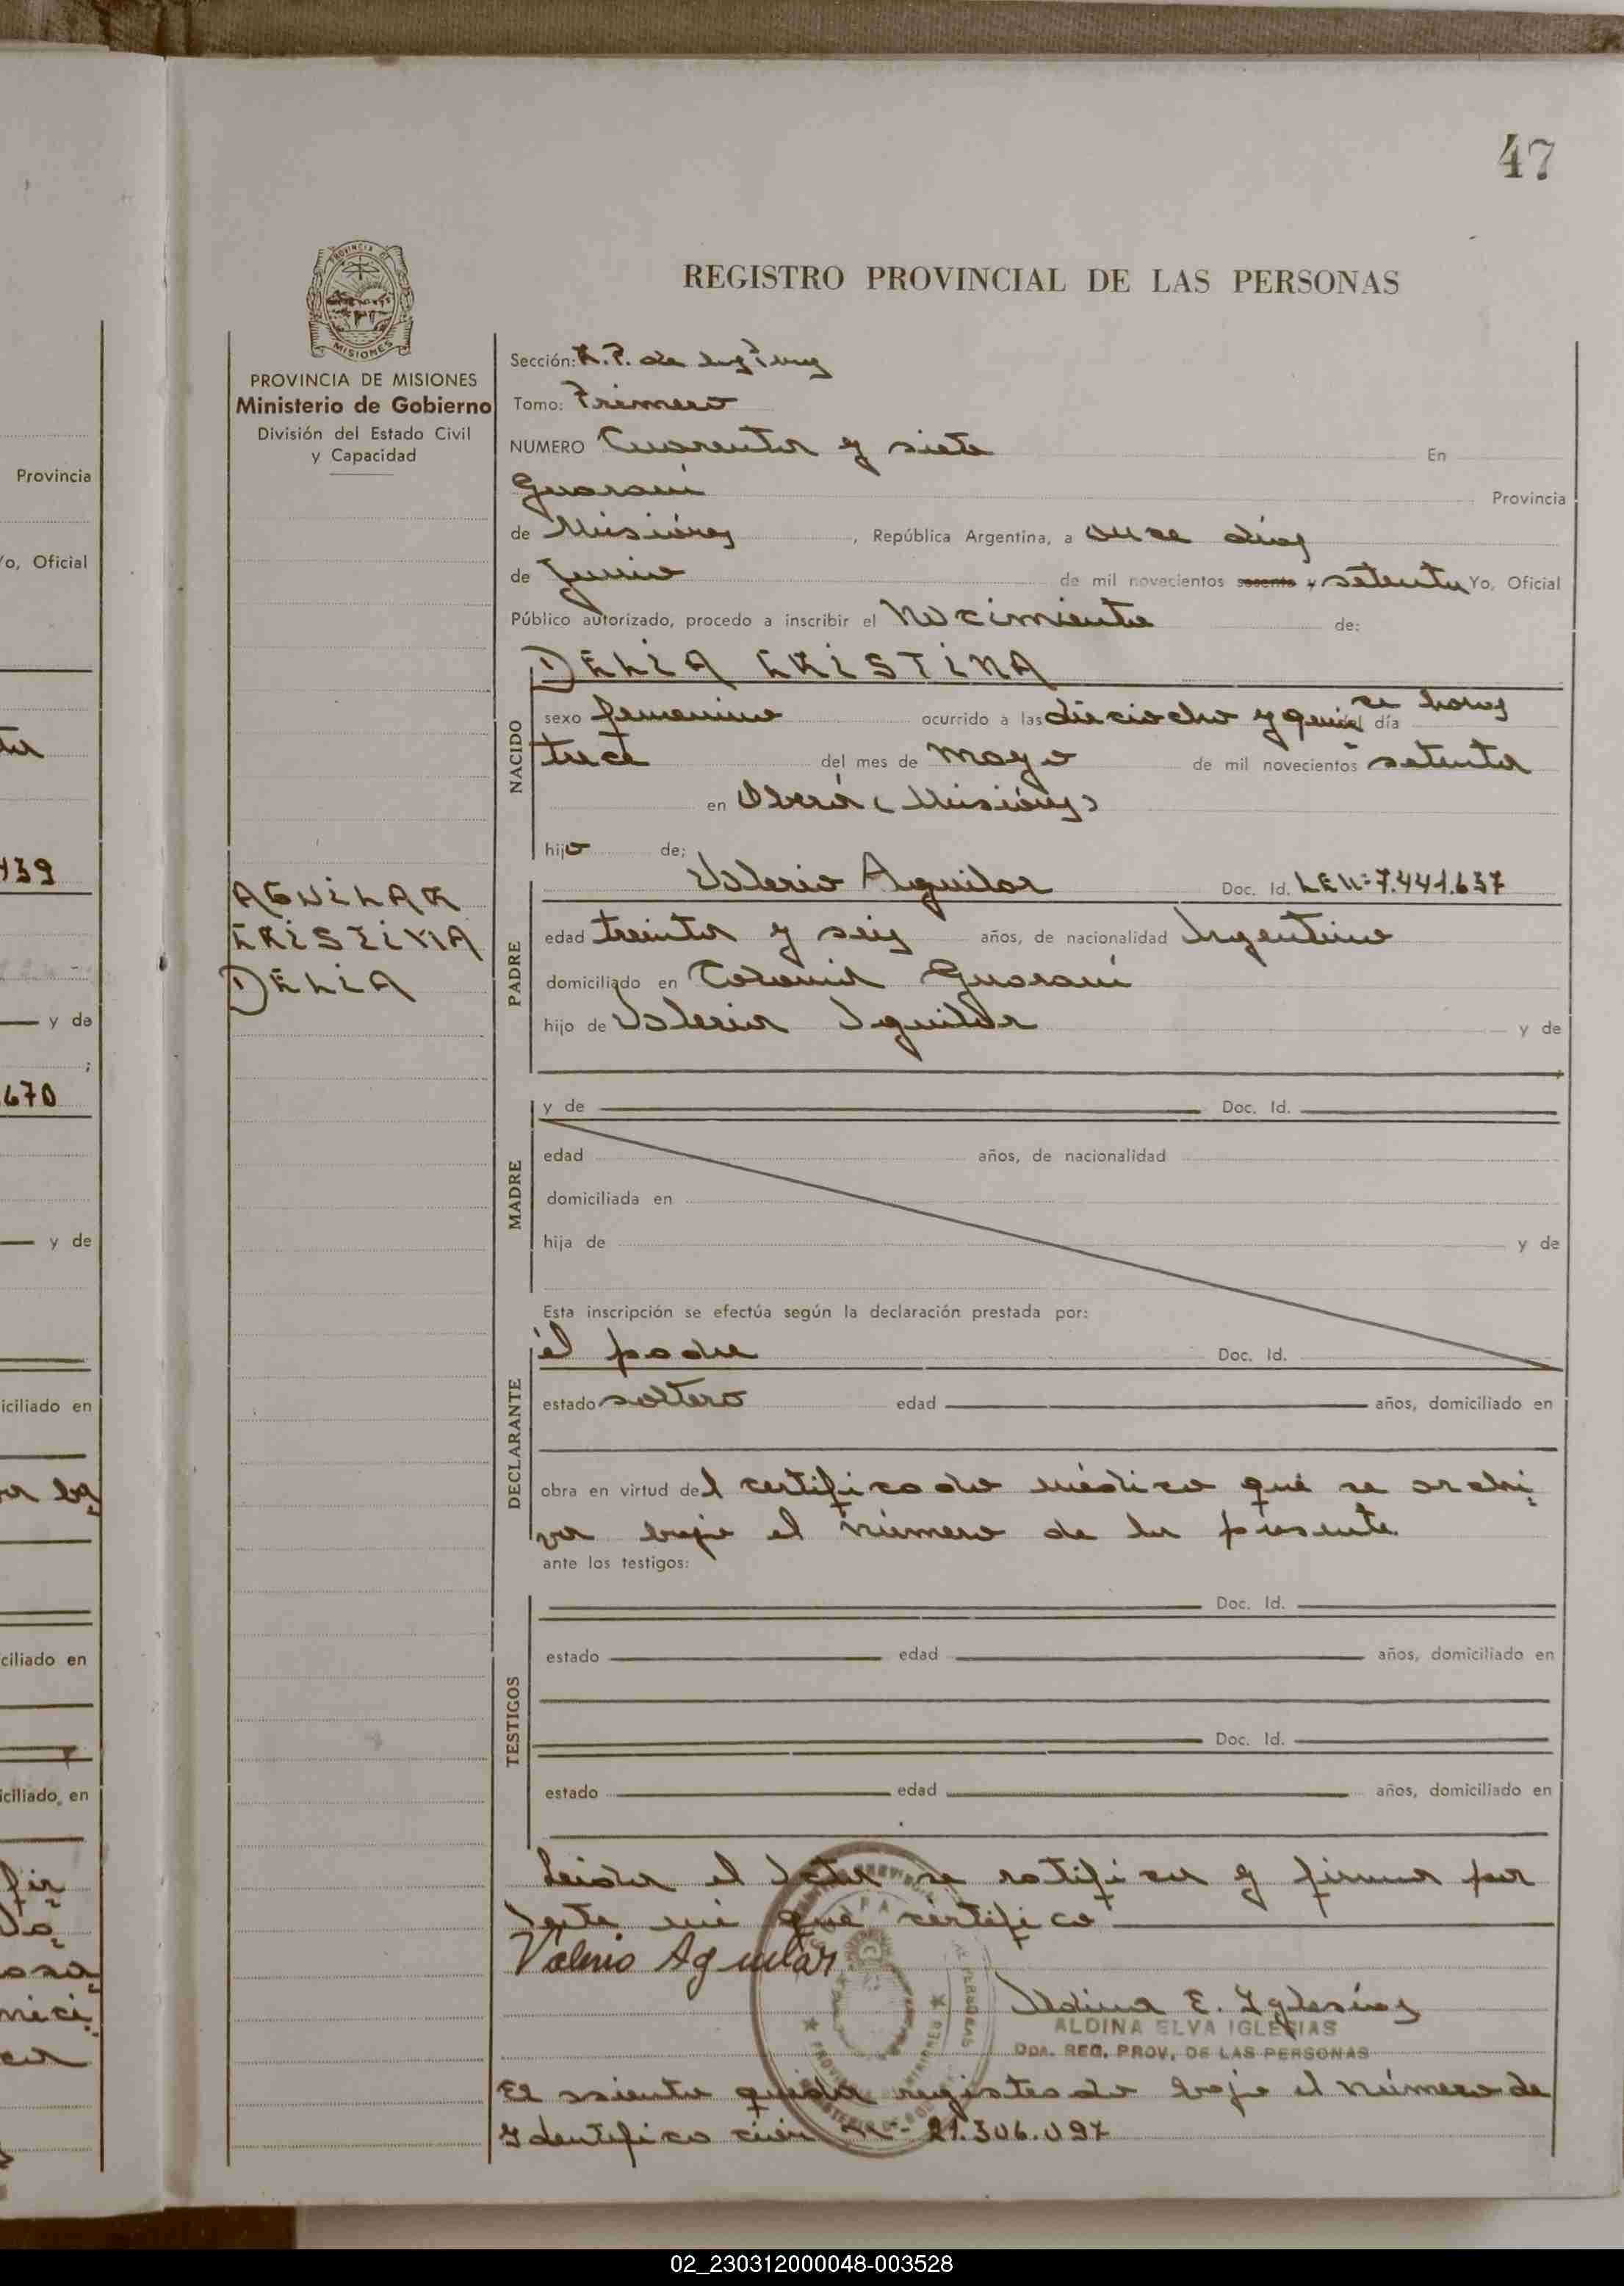 47
REGISTRO PROVINCIAL DE LAS PERSONAS
PROVINCIA DE MISIONES
Ministerio de Gobierno
División del Estado Civil
y Capacidad
Sección: R.P. de
Tomo: Primero
NUMERO Cuarenta y siete En
Guaraní Provincia
de Misiones, República Argentina, a once días
de Junio de mil novecientos sesenta y setenta Yo, Oficial
Público autorizado, procedo a inscribir el Nacimiento de:
DELIA CRISTINA
NACIDO
sexo femenino ocurrido a las dieciocho y quince horas día
trece del mes de Mayo de mil novecientos setenta
en Oberá (Misiones)
hija de:
AGUILAR
CRISTINA
DELIA
PADRE
Valerio Aguilar Doc. Id. L E Nº 7.441.637
edad treinta y seis años, de nacionalidad Argentino
domiciliado en Colonia Guaraní
hijo de Valeria Aguilar y de
MADRE
y de Doc. Id.
edad años, de nacionalidad
domiciliada en
hija de y de
Esta inscripción se efectúa según la declaración prestada por:
DECLARANTE
él padre Doc. Id.
estado soltero edad años, domiciliado en
obra en virtud del certificado médico que se archi
va bajo el número de la presente
ante los testigos:
TESTIGOS
Doc. Id.
estado edad años, domiciliado en
Doc. Id.
estado edad años, domiciliado en
Leída el Acta se ratifica y firma por
Ante mi que certifico
Valerio Aguilar
Aldina E. Iglesias
ALDINA ELVA IGLESIAS
ODA. REG. PROV. DE LAS PERSONAS
El asiento queda registrado bajo el número de
Identificación Nº 21.306.097
Provincia
Yo, Oficial
439
y de
670
y de
iciliado en
ciliado en
iciliado en
02_230312000048-003528